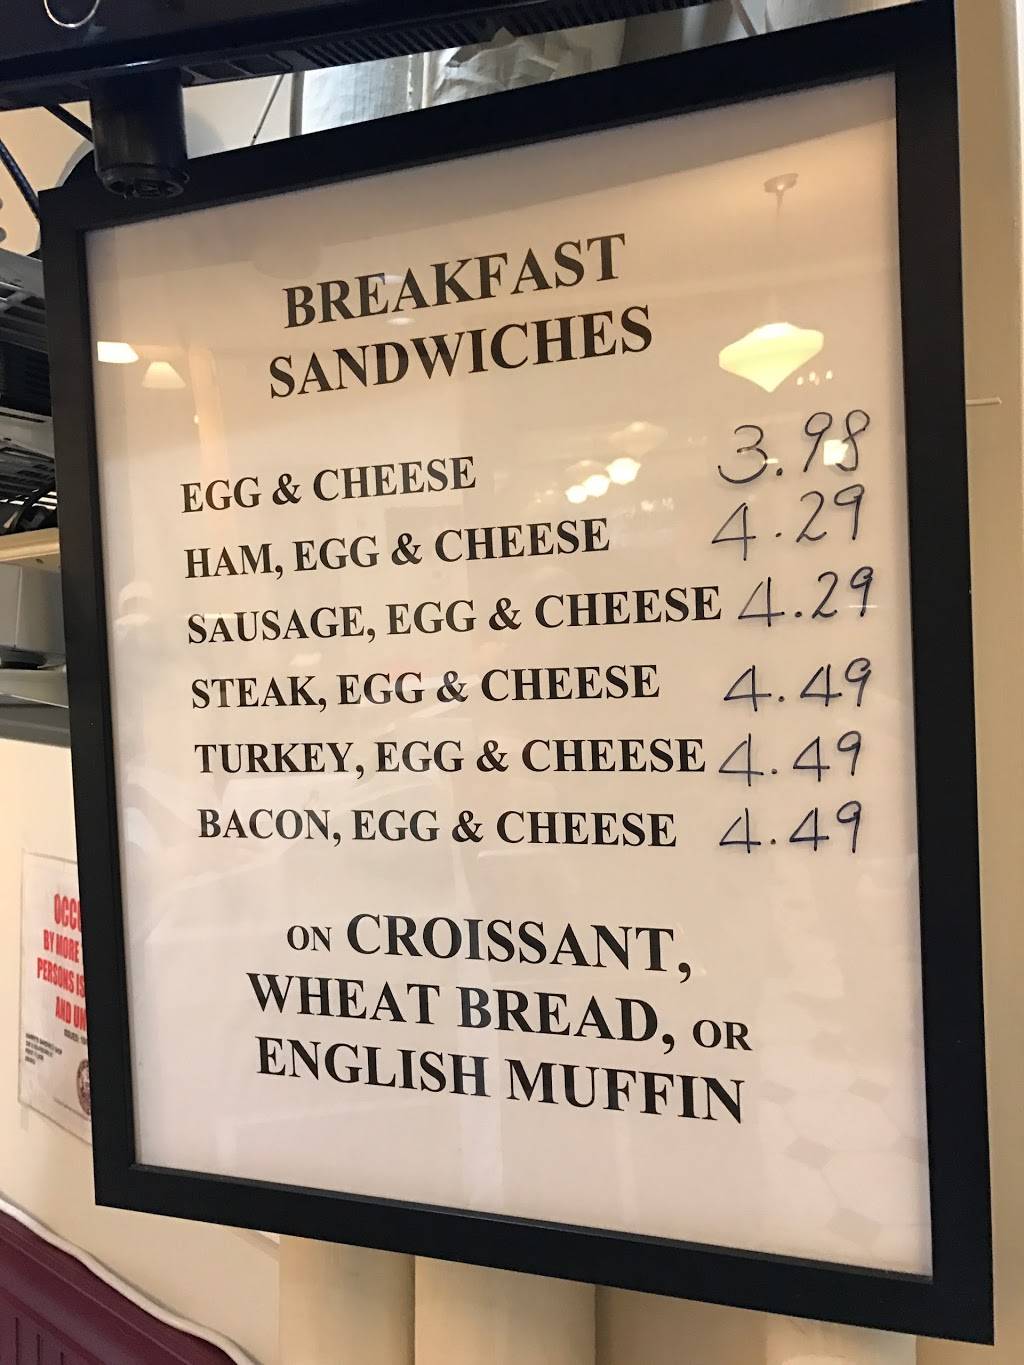 BREAKFAST
SANDWICHES
EGG & CHEESE 3.98
HAM, EGG & CHEESE 4.29
SAUSAGE, EGG & CHEESE 4.29
STEAK, EGG & CHEESE 4.49
TURKEY, EGG & CHEESE 4.49
BACON, EGG & CHEESE 4.49
ON CROISSANT,
WHEAT BREAD, OR
ENGLISH MUFFIN
BY MORE
PERSONS IS
AND